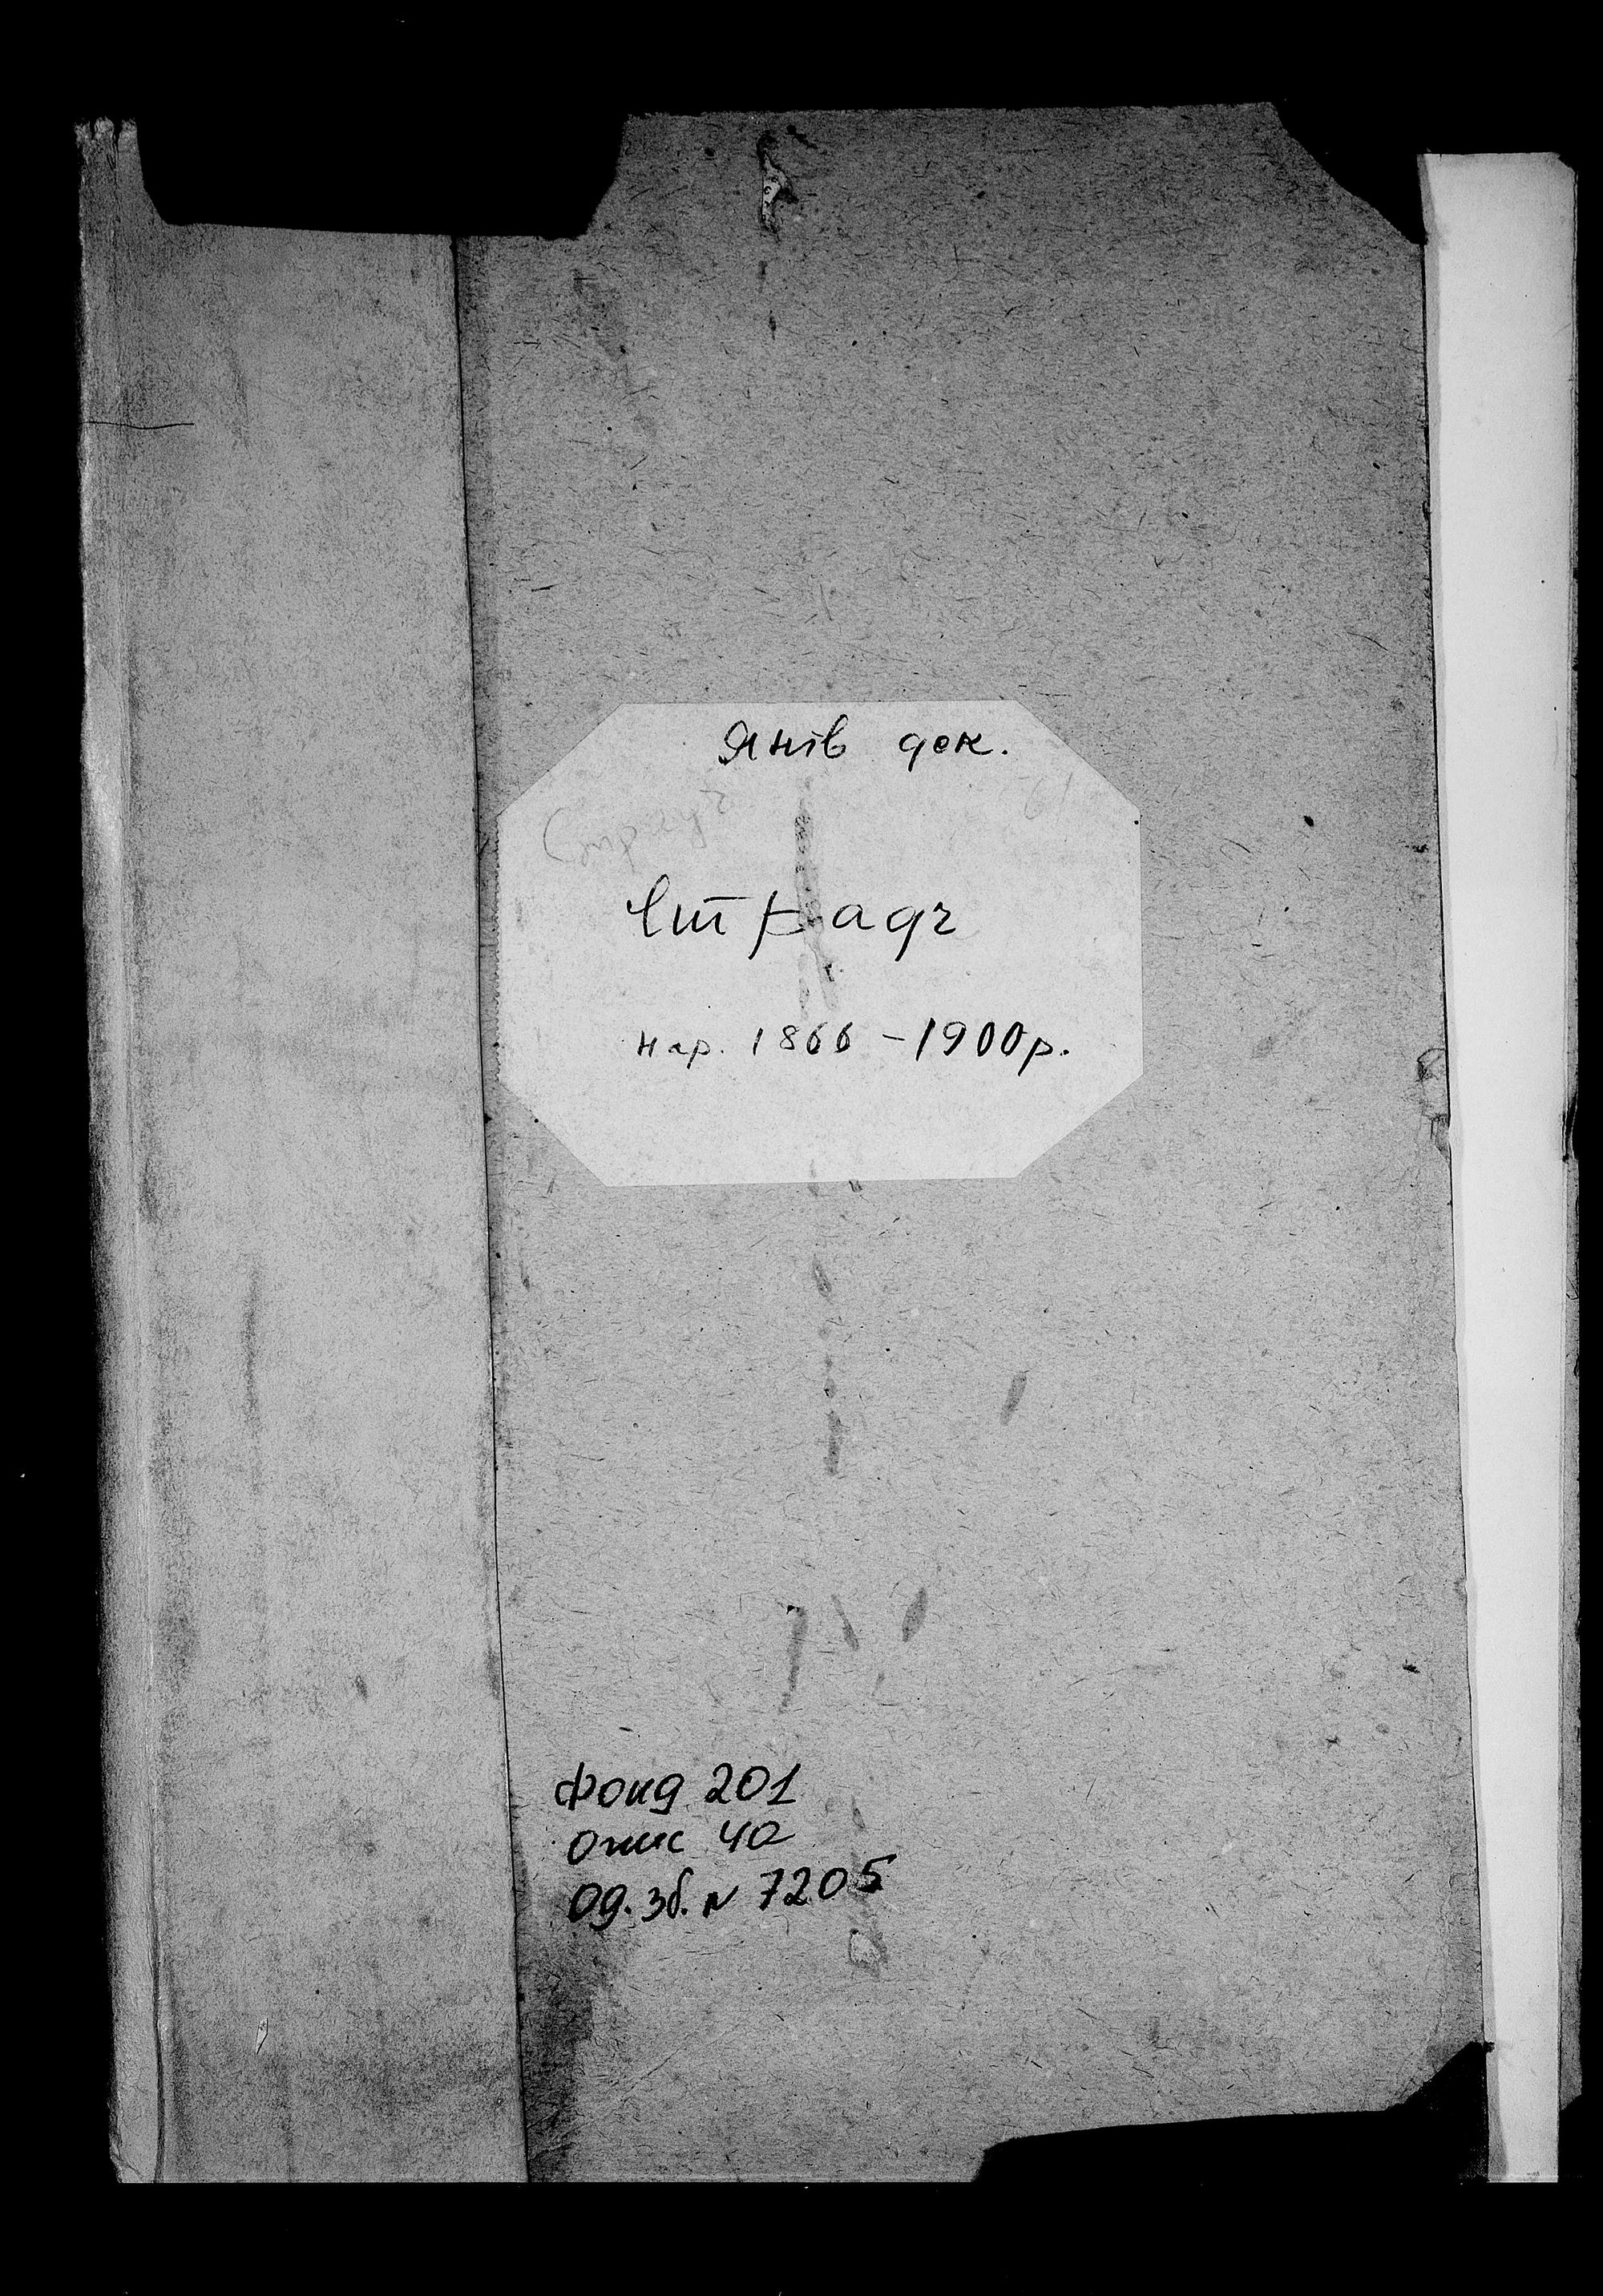 Янів дек.
Страдч
нар. 1866 – 1900р.
Фонд 201
Опис 4а
Од. зб. N 7205